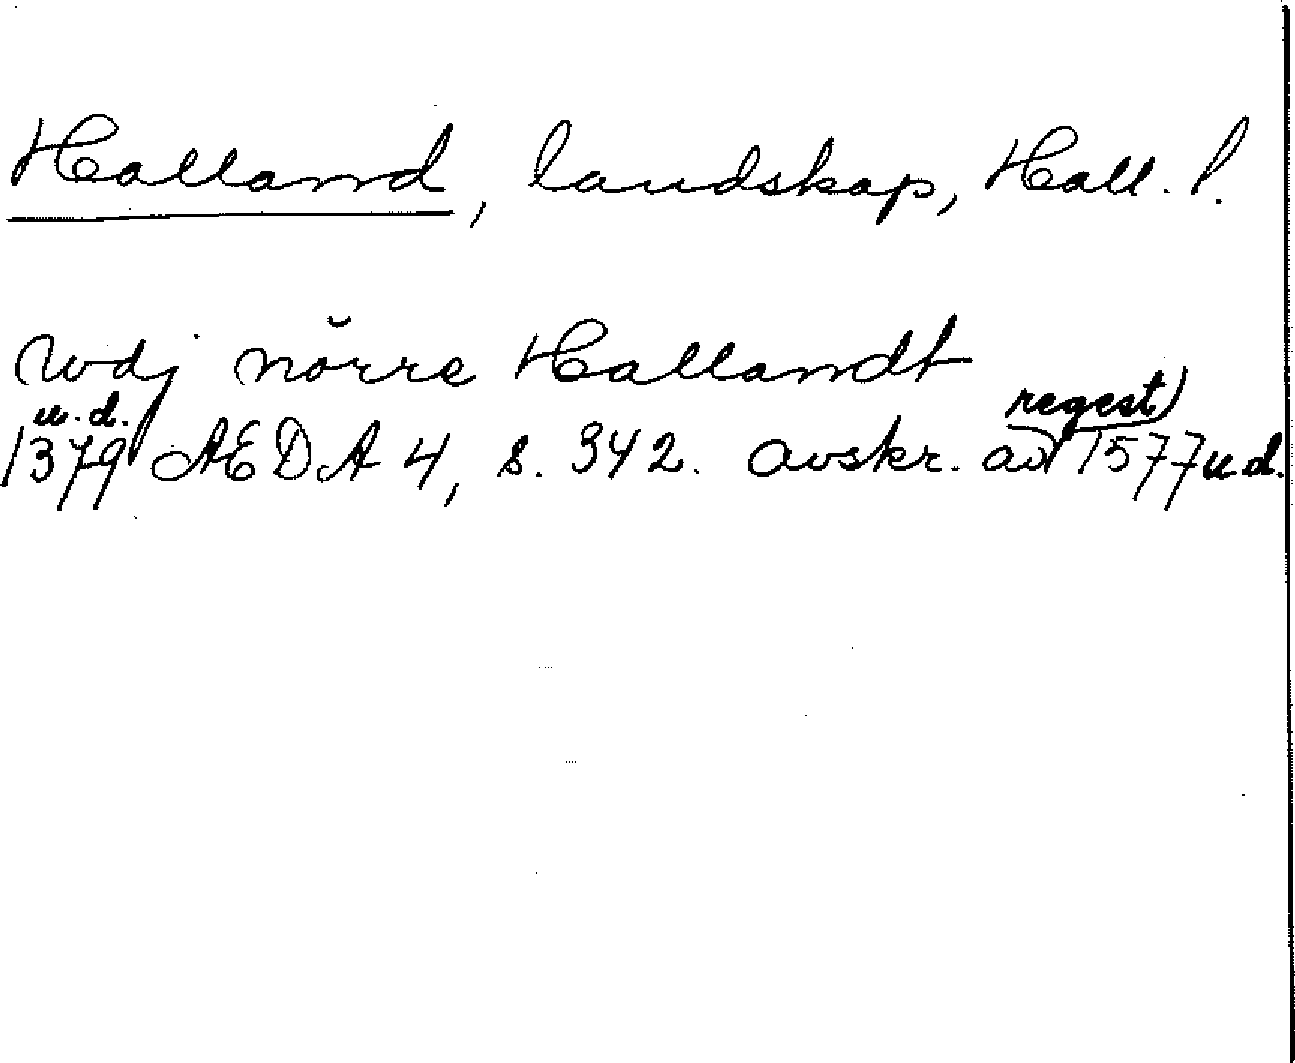 Halland, landskap, Hall. l.
wdj nŏrre Hallandt
1379 u.d. AEDA 4, s. 342. avskr. av regest 1577 u.d.